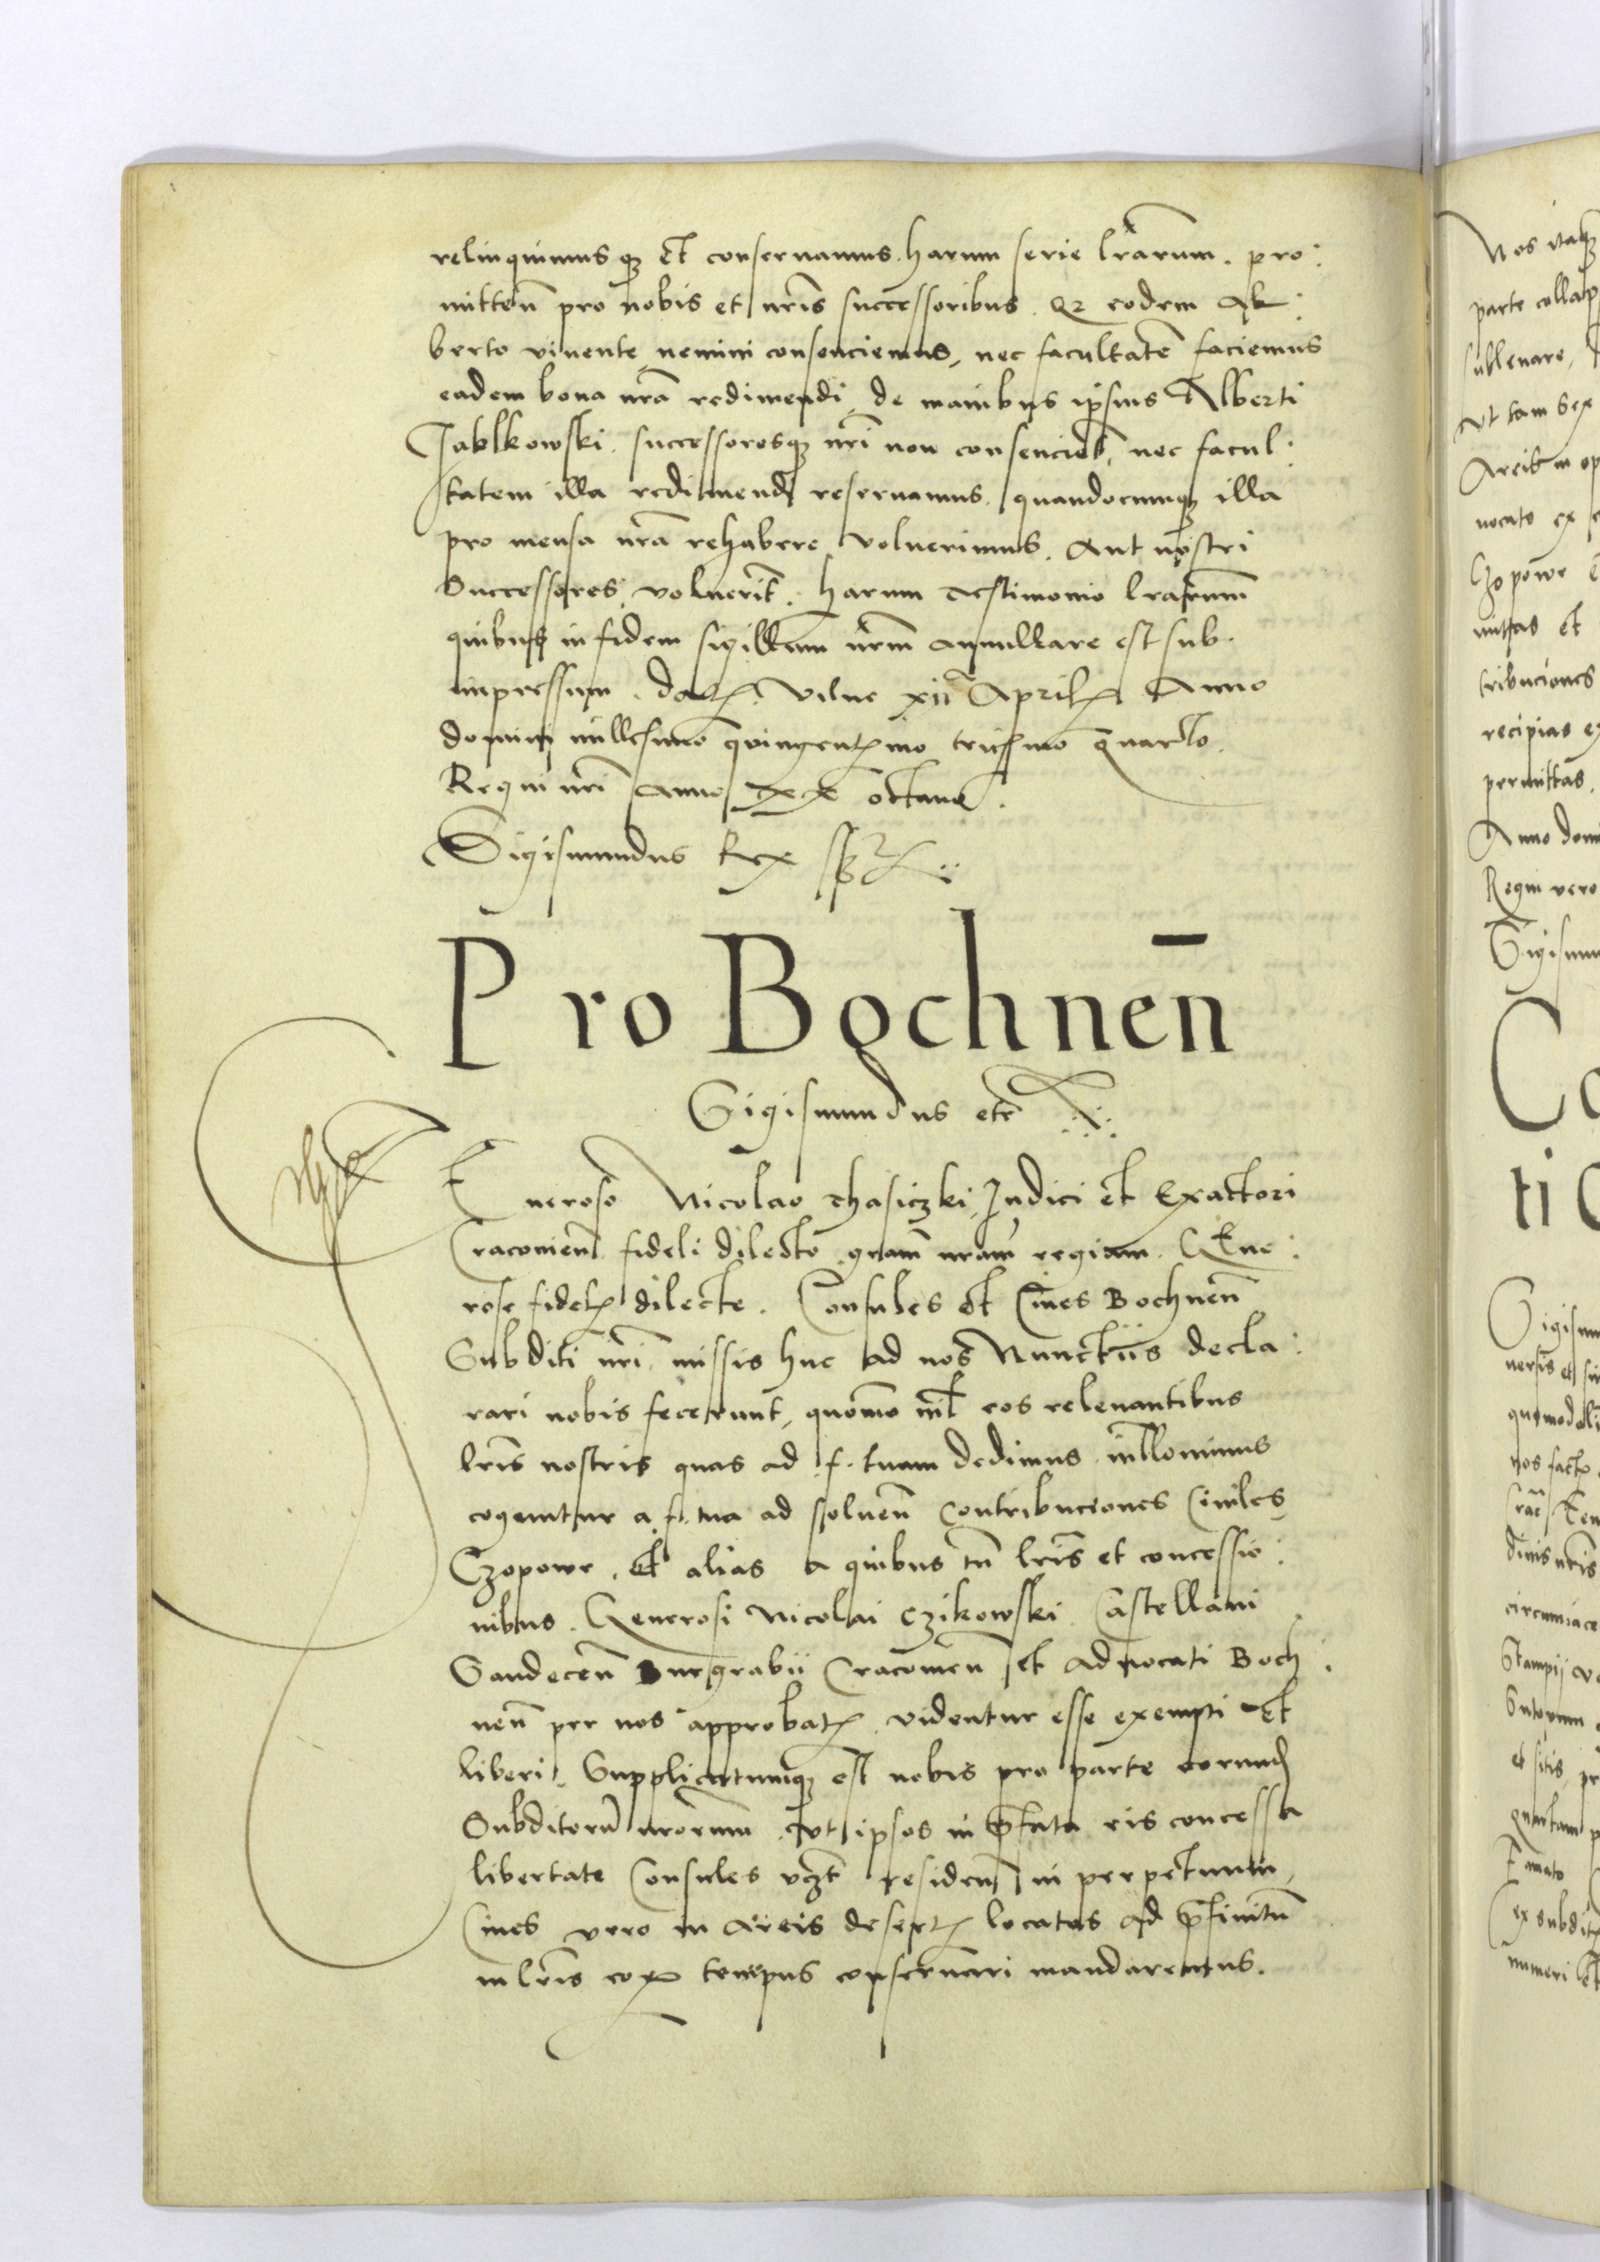 relinquimusq3 et conservamus harum serie lrarum. pro:
mitten̄ pro nobis et nr̄is successoribus. q2 eodem Al:
berto vivente, nemini consenciemus, nec facultatē faciemus
eadem bona nr̄a redimendi, de manibus ipsius Alberti
Jablkowski. successoresq3 nr̄i non consencient, nec facul:
tatem illa redimendi reservamus. quandocumq3 illa
pro mensa nr̄a rehabere voluerimus. Aut nostri
Successores, voluerīt. harum testimonio lrarum̄
quibus in fidem sigillum nr̄m annullare est sub.
impressum. dat. Vilne xii Aprilis Anno
domini millesimo quingentesimo tricesimo quarto.
Regni nr̄i Anno xx octavo.
Sigismundus Rex sst
Pro Bochnen̄
Sigismundus etc̄
Generoso Nicolao Thasiczki, Judici et Exactori
Cracovien̄ fideli dilecto, gram̄ nram̄ regiam. Gene:
rose fidelis dilecte. Consules et Cives Bochnen̄
Subditi nr̄i missis huc ad nos Nunctiis decla:
rari nobis fecerunt, quōmo nil eos relevantibus
lr̄is nostris quas ad f. tuam dedimus inllominus
cogeantur a f. tua ad solven̄ Contribuciones Civiles
Czopowe. et alias a quibus tn̄ lr̄is et concessio:
nibus. Generosi Nicolai Czikowski Castellani
Sandecen̄ Burgrabii Cracovien̄ et Advocati Boch:
nen̄ per nos approbatis, videntur esse exempti et
liberi. Supplicatumq3 est nobis pro parte eorund
Subditorū nrorum, ut ipsos in p̄fata eis concessa
libertate Consules vz̄t residen̄ in perpetuum,
Cives vero in Areis desertis locatos ad p̄finitū
in lr̄is eorum tempus conservari mandaremus.
Nos itaq3
parte collap
sublevare,
ut tam sex
Areis in op
vocato ex
Czopowe
nitas et
tribuciones
recipias ex
permittas.
Anno domi
Regni vero
Sigismu
Co
ti
Sigismu
versis et si
quomodoli
nos facte
divis nr̄is
circumiace
Stampii
Sutorum
et sitis, pr
quantam p
ex subdit
numeri et